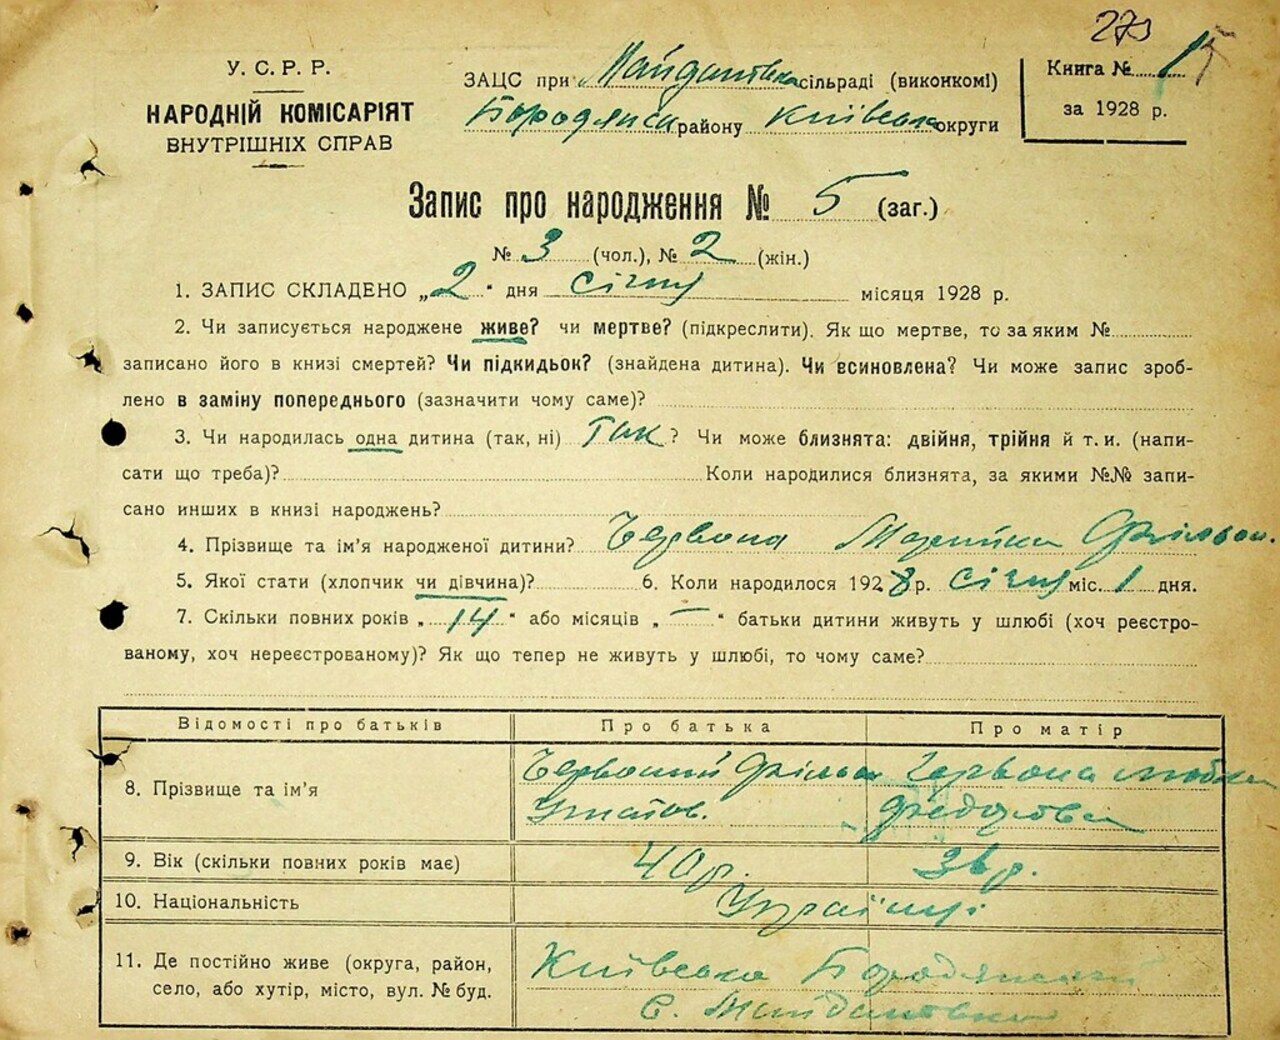 273
У. С. Р. Р.
НАРОДНІЙ КОМІСАРІЯТ
ВНУТРІШНІХ СПРАВ
ЗАЦС при Майданівка сільраді (виконкомі)
Бородянск району Київська округи
Книга № 1
за 1928 р.
Запис про народження № 5 (заг.)
№ 3 (чол.), № 2 (жін.)
1. ЗАПИС СКЛАДЕНО „2" дня січня місяця 1928 р.
2. Чи записується народжене живе? чи мертве? (підкреслити). Як що мертве, то за яким №
записано його в книзі смертей? Чи підкидьок? (знайдена дитина). Чи всиновлена? Чи може запис зроб-
лено в заміну попереднього (зазначити чому саме)?
3. Чи народилась одна дитина (так, ні) так? Чи може близнята: двійня, трійня й т. и. (напи-
сати що треба)? Коли народилися близнята, за якими №№ запи-
сано инших в книзі народжень?
4. Прізвище та ім'я народженої дитини? Червона Марийка
5. Якої стати (хлопчик чи дівчина)? 6. Коли народилося 1928 р. січня міс. 1 дня.
7. Скільки повних років „14" або місяців „—" батьки дитини живуть у шлюбі (хоч реєстро-
ваному, хоч нереєстрованому)? Як що тепер не живуть у шлюбі, то чому саме?
Відомості про батьків Про батька Про матір
8. Прізвище та ім'я Червоний Червона
9. Вік (скільки повних років має) 40 р. 36 р.
10. Національність Українці
11. Де постійно живе (округа, район,
село, або хутір, місто, вул. № буд.
Київська Бородянський
с. Майданівка